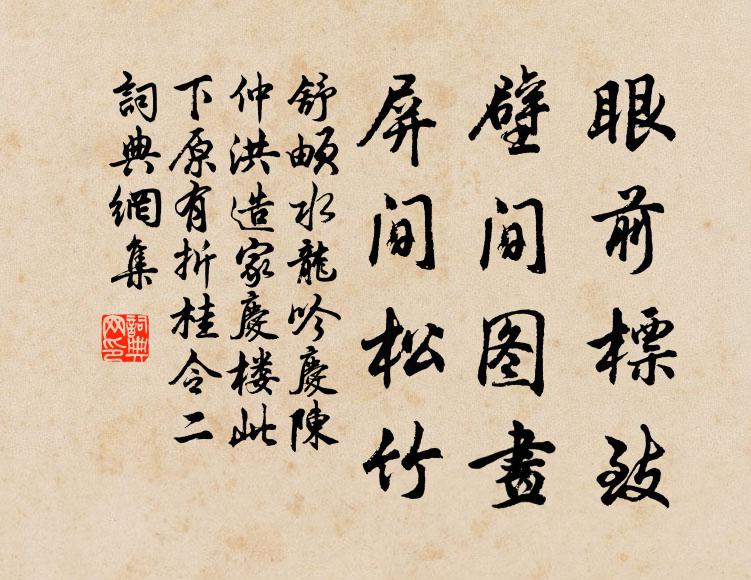 眼前標致
壁间图畫
屏间松竹
舒頔水龍吟慶陳
仲洪造家慶楼此
下原有折桂令二
詞典網集
詞典
网印